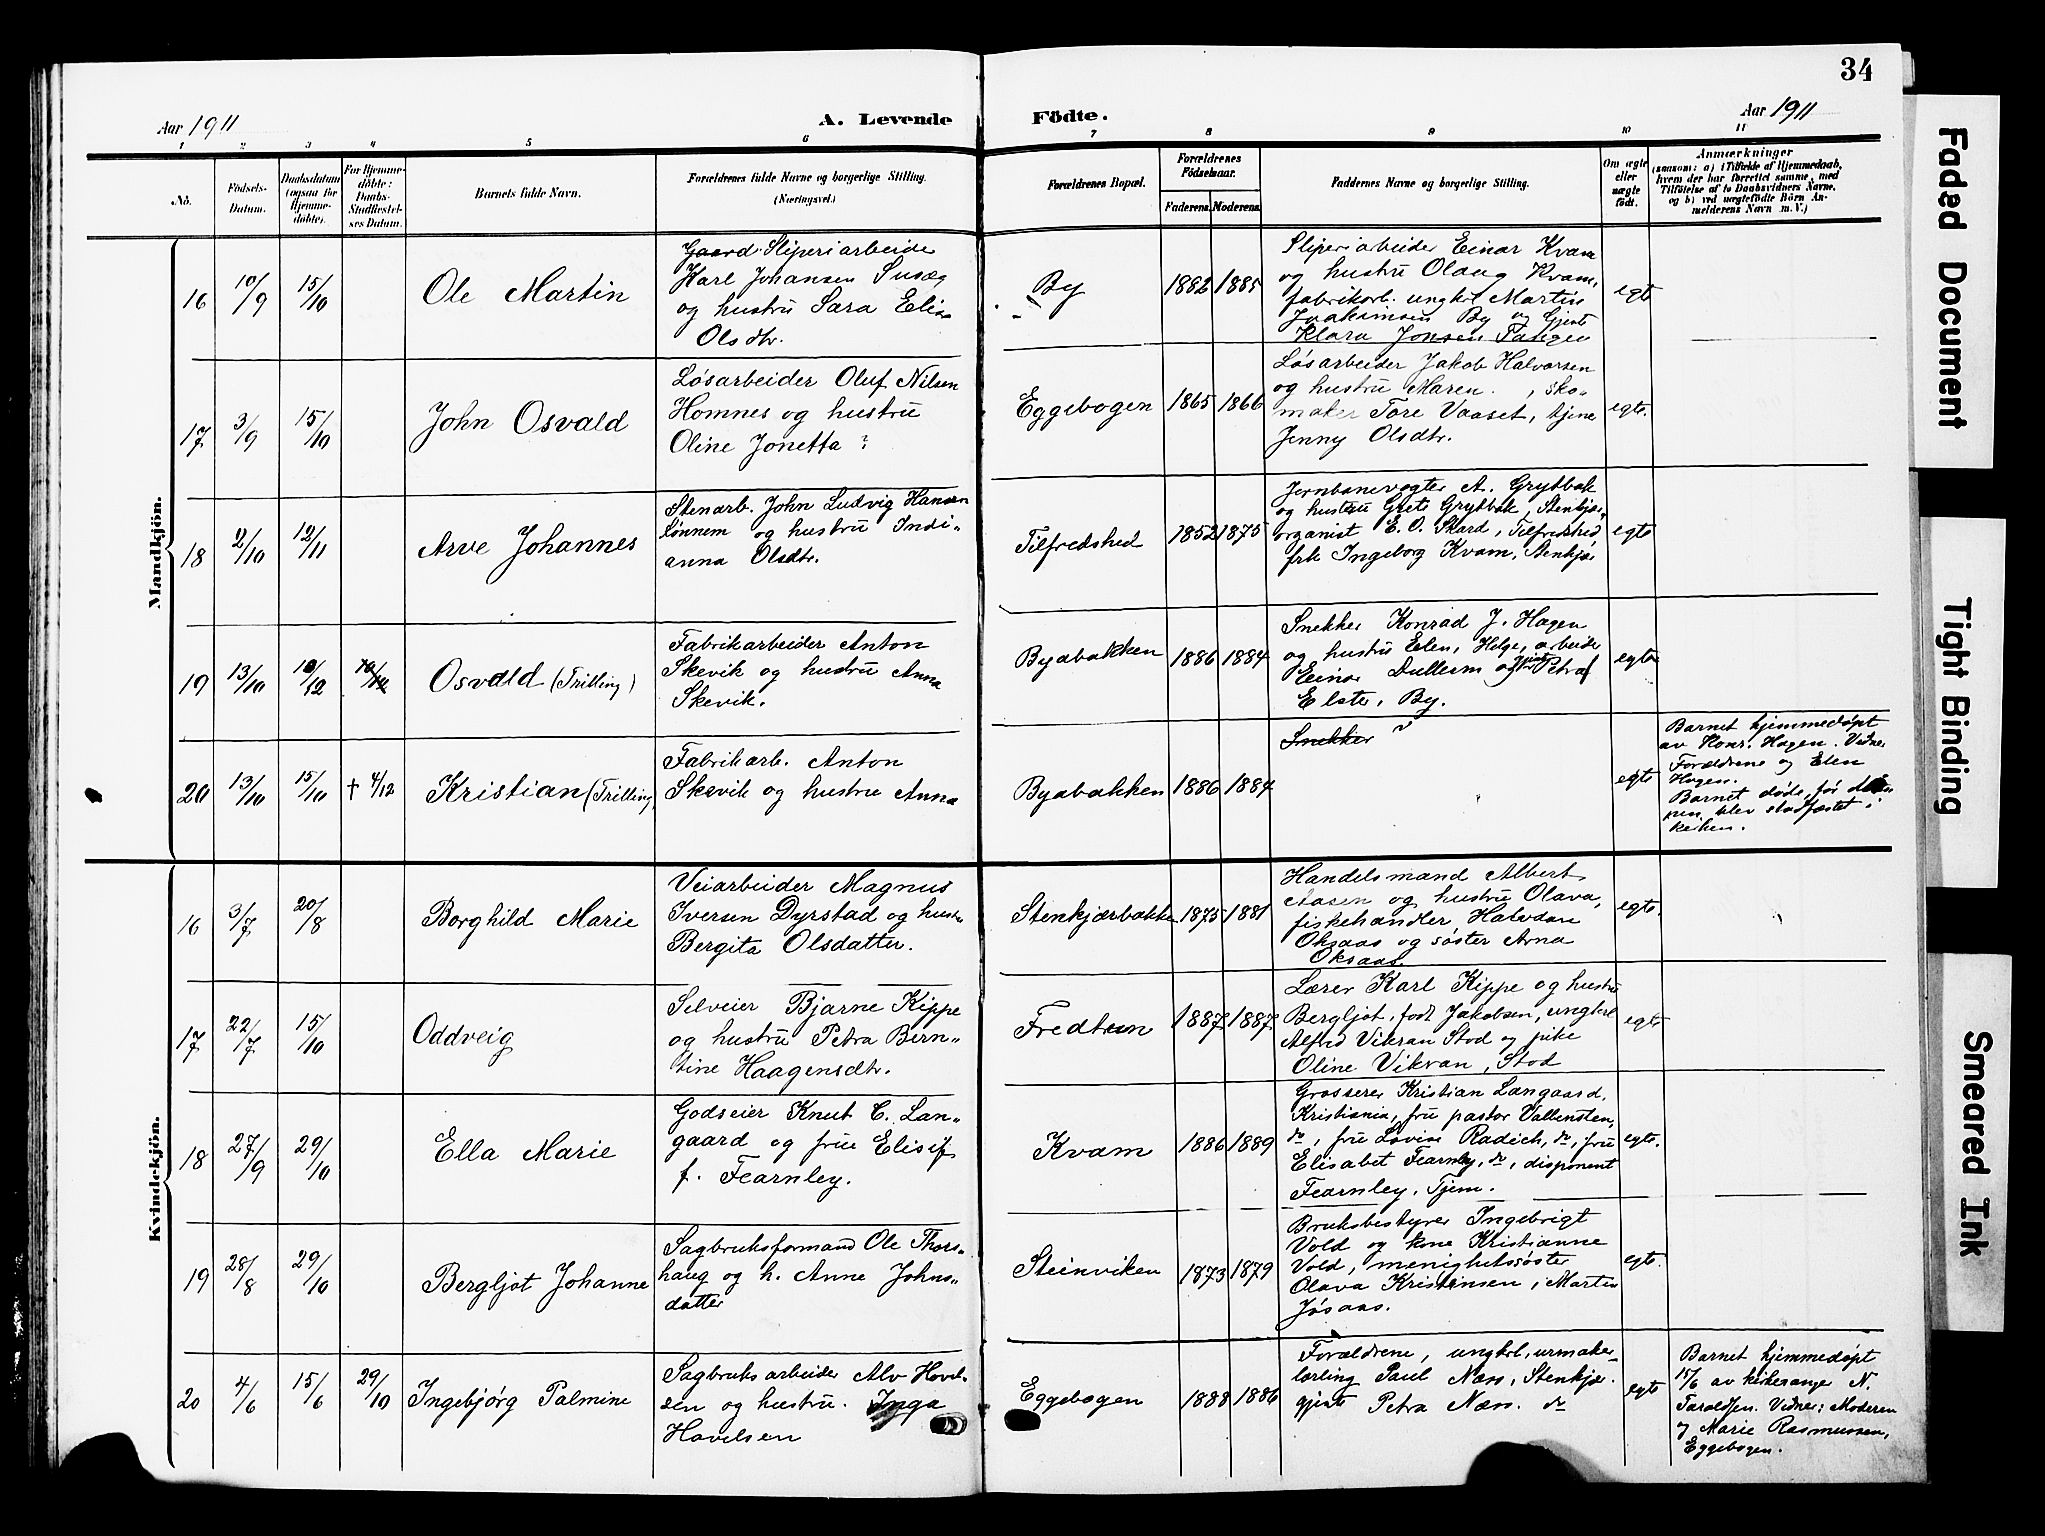 34
Aar 1911
A. Levende Födte.
Aar 1911
1 2 3 4 5 6 7 8 9 10 11
No.
Födsels-
Datum.
Daabsdatum
(ogsaa for
Hjemme-
döbte).
For Hjemme-
döbte:
Daabs-
Stadfæstel-
ses Datum.
Barnets fulde Navn.
Forældrenes fulde Navne og borgerlige Stilling.
(Næringsvei.)
Forældrenes Bopæl.
Forældrenes
Födselsaar.
Faderens. Moderens.
Faddernes Navne og borgerlige Stilling.
Om ægte
eller
uægte
födt.
Anmærkninger
(saasom: a) i Tilfælde af Hjemmedaab,
hvem der har forrettet samme, med
Tilföielse af to Daabsvidners Navne,
og b) ved uægtefödte Börn An-
melderens Navn m. V.)
Mandkjön.
16 10/9 15/10
Ole Martin
Gaard Sliperiarbeide
Karl Johansen
og hustru Sara Elis-
Olsdtr.
By
1882 1885
Sliperiarbeider Einar Kvam
og hustru Olaug Kvam,
fabrikarb. ungkrl Martin
Joakimsen By og Gjente
Klara Jonsen Tangen
egte
17 3/9 15/10
John Osvald
Løsarbeider Oluf Nilsen
Homnes og hustru
Oline Jonetta ?
Eggebogen
1865 1866
Løsarbeider Jakob Halvorsen
og hustru Maren , sko-
maker Tore Vaaset, tjene
Jenny Olsdtr.
egte.
18 2/10 12/11
Arve Johannes
Stenarb. John Ludvig Hansen
Lønnem og hustru Indi-
anna Olsdtr.
Tilfredshed
1852 1875
Jernbanevogter A. Grytbak
og hustru Grete Grytbak, Stenkjær
organist E. O. Skard, Tilfredshed
frk Ingeborg Kvam, Stenkjær
egte
19 13/10 10/12 10/12
Osvald (Trilling)
Fabrikarbeider Anton
Skevik og hustru Anna
Skevik.
Byabakken
1886 1884
Snekker Konrad J. Hagen
og hustru Elen, Helge, arbeide
Einar Dullum og Petra
Elster, By.
egte
20 13/10 15/10 † 4/12
Kristian (Trilling)
Fabrikarb. Anton
Skevik og hustru Anna
Byabakken
1886 1884
Snekker
egte
Barnet hjemmedøpt
av Konr. Hagen. Vidner
Forældrene og Elen
Hagen.
Barnet døde, før daa
pen blev stadfæstet i
kirken.
Kvindekjön.
16 3/7 20/8
Borghild Marie
Veiarbeider Magnus
Iversen Dyrstad og hustr.
Bergita Olsdatter.
Stenkjærbakke
1875 1881
Handelsmand Albert
Aasen og hustru Olava,
fiskehandler Halvdan
Oksaas og søster Arna
Oksaas.
egte.
17 22/7 15/10
Oddveig
Selveier Bjarne Kippe
og hustru Petra Bern-
tine Haagensdtr.
Fredtun
1887 1887
Lærer Karl Kippe og hustru
Bergljot, født Jakobsen, ungkrl
Alfred Vikran Stod og pike
Oline Vikran, Stod
egte
18 27/9 29/10
Ella Marie
Godseier Knut C. Lan-
gaard og frue Elisif
f. Fearnley.
Kvam
1886 1889
Grosserer Kristian Langaard,
Kristiania, fru pastor Vallensten,
do, fru Lovise Radich, do, fru
Elisabet Fearnley, do, disponent
Fearnley, Tjem.
egte.
19 28/8 29/10
Bergljot Johanne
Sagbruksformand Ole Thors-
haug og h. Anne Johns-
datter
Steinviken
1873 1879
Bruksbestyrer Ingebrigt
Vold og kone Kristianne
Vold, menighetssøster
Olava Kristensen, Martin
Jøsaas.
egte.
20 4/6 15/6 29/10
Ingebjørg Palmine
Sagbruksarbeider Alv Havel-
sen og hustru. Inga
Havelsen
Eggebogen
1888 1886
Forældrene, ungkrl, urmaker-
lærling Paul Næss, Stenkjær.
gjente Petra Næss. do
egte
Barnet hjemmedøpt
15/6 av kirkesanger N.
Taraldsen. Vidner: Moderen
og Marie Rasmussen,
Eggebogen.
Faded Document
Tight Binding
Smeared Ink